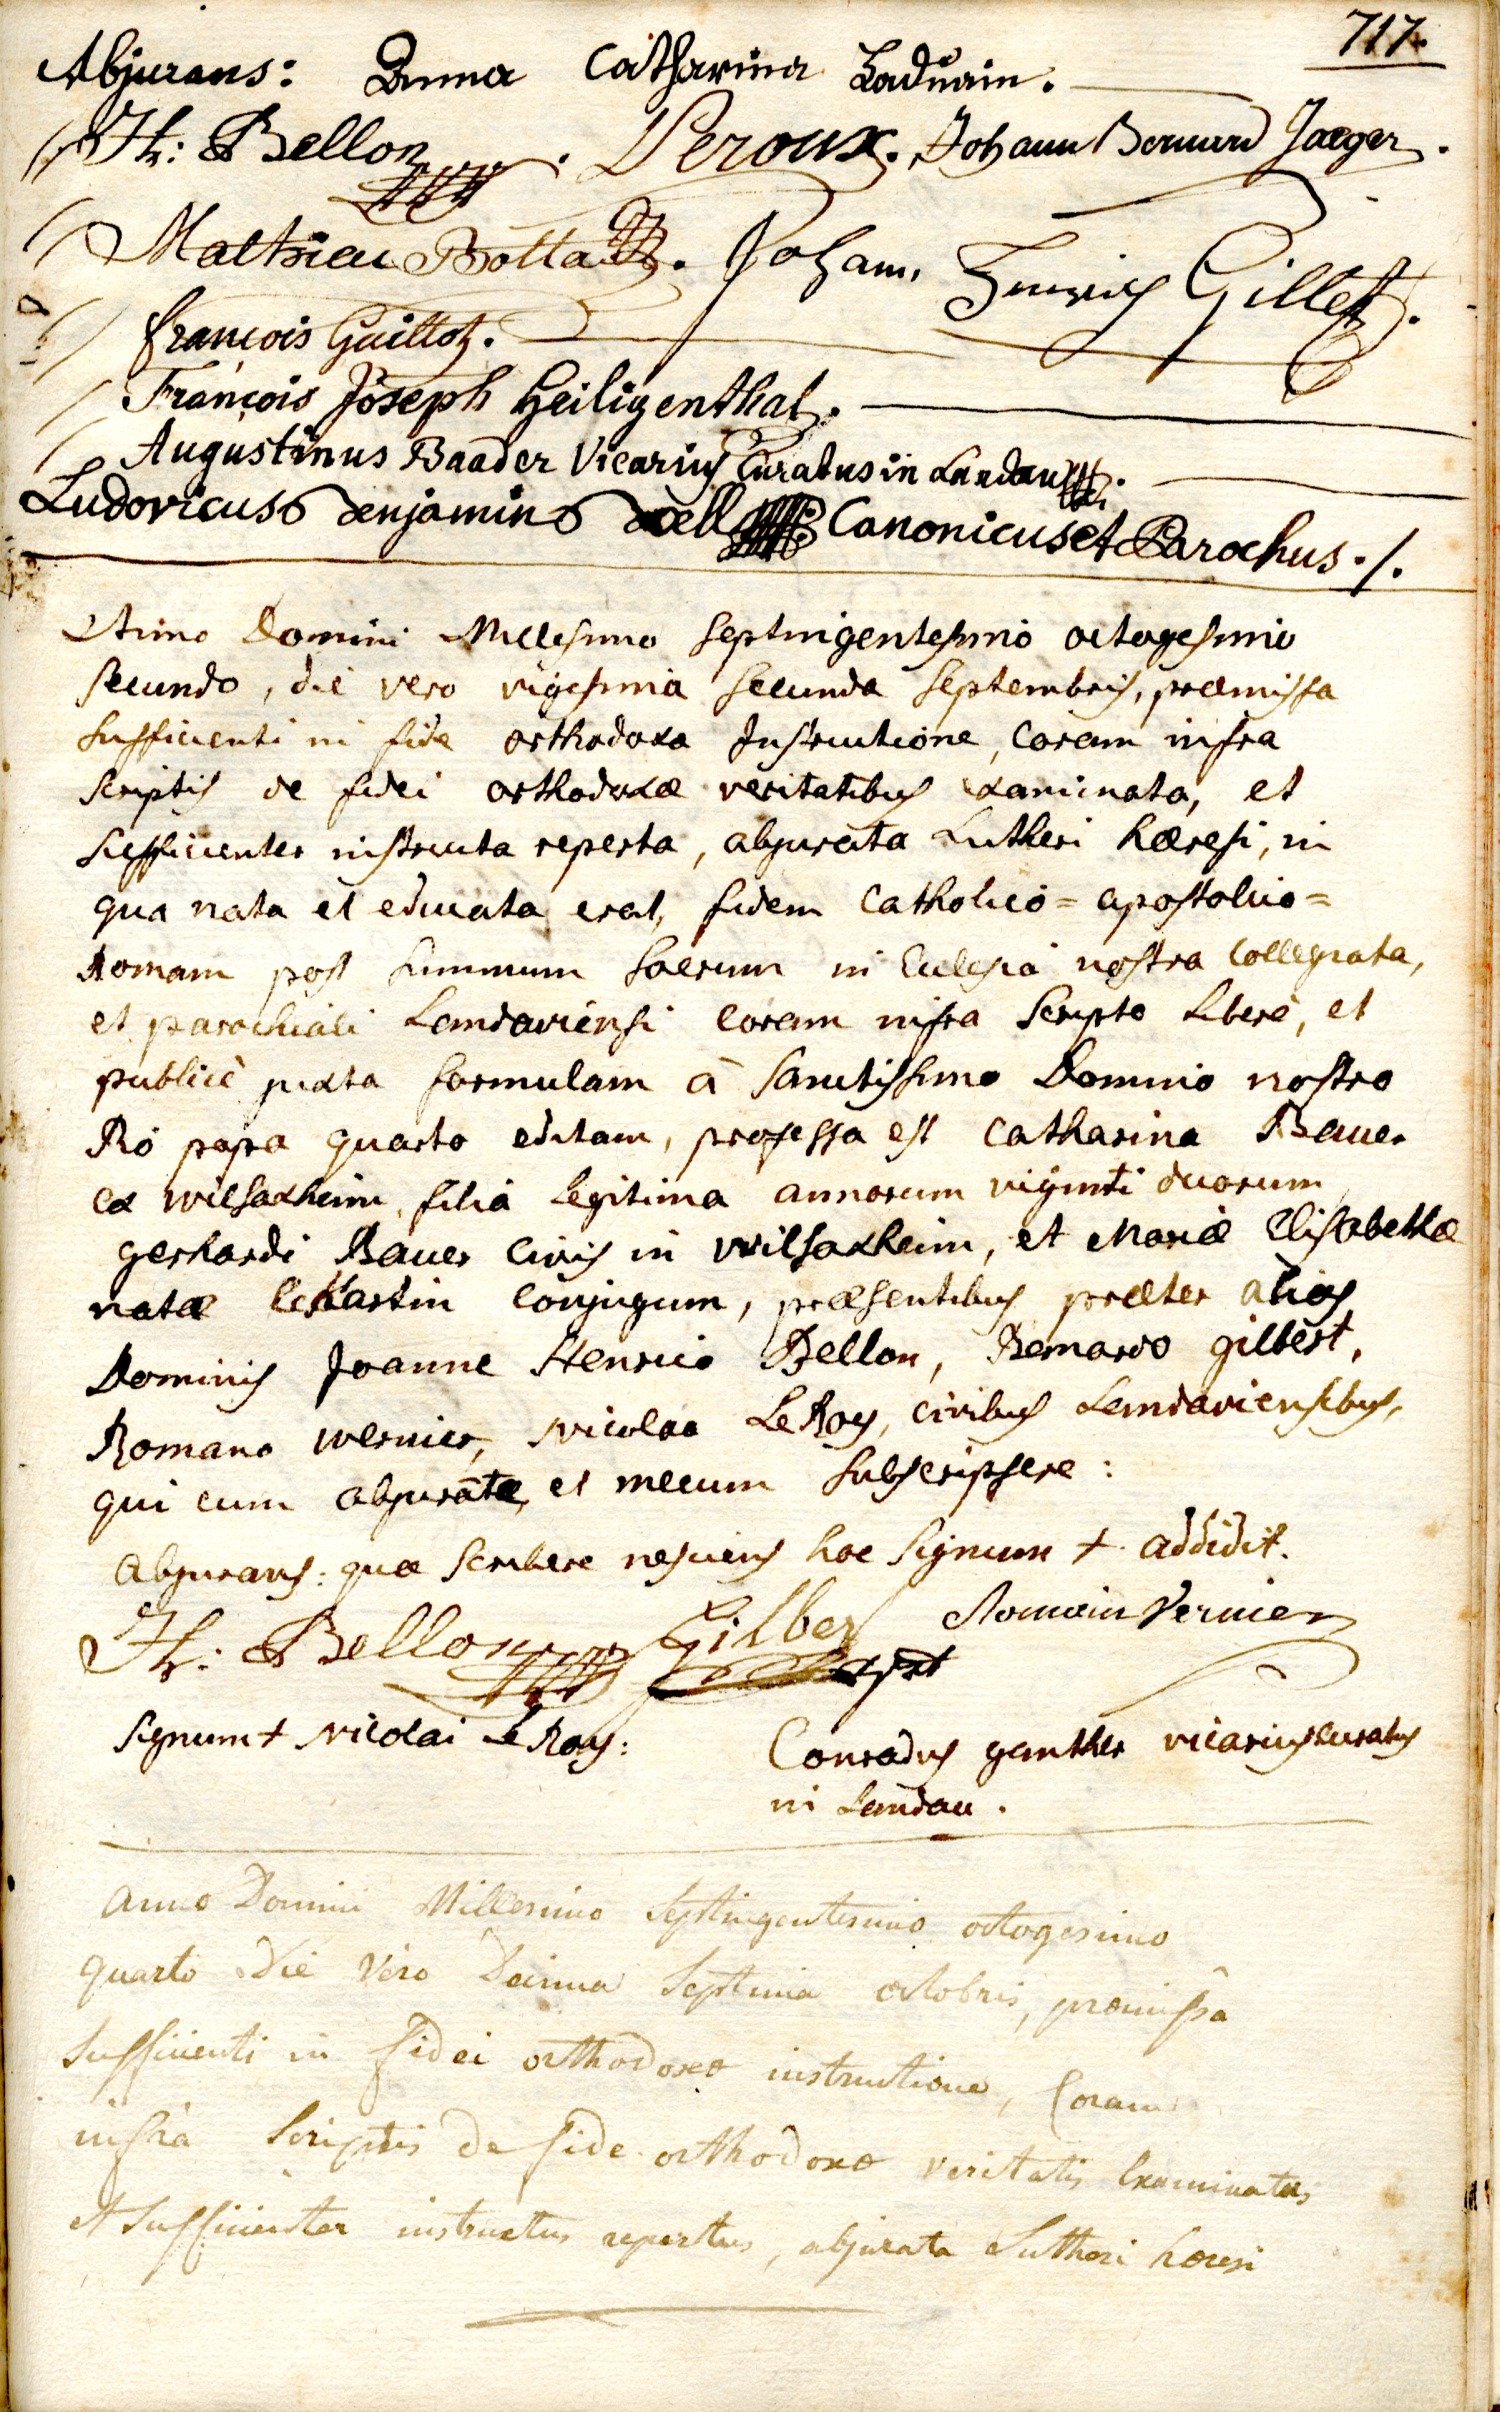 717.
Abjurans: Anna Catharina Laduain.
H: Bellon. Peroux. Johann Bernard Jaeger.
Mathieu Botta. Johann Henrich Gillet.
François Guillot.
François Joseph Heiligenthal.
Augustinus Baader Vicarius Curatus in Landau.
Ludovicus Benjamin Canonicus et Parochus./.
Anno Domini Millesimo septingentesimo octogesimo
secundo, die vero vigesima secunda septembris, præmissa
sufficienti in fide orthodoxa Instructione, coram infra
scriptis de fidei orthodoxæ veritatibus examinata, et
sufficienter instructa reperta, abjurata Lutheri hæresi, in
qua nata et educata erat, fidem Catholico = apostolico =
Romam post summum sacrum in Eclesia nostra Collegiata,
et parochiali Landaviensi coram infra scripto libere, et
publicè juxta formulam à Sanctissimo Domino nostro
Pio papa quarto editam, professa est Catharina Bauer
ex wilsaxheim, filia legitima annorum viginti duorum
gerhardi Bauer civis in wilsaxheim, et Mariæ Elisabethæ
natæ Conjugum, præsentibus præter alios
Dominis Joanne Henrico Bellon, Bernardo gilbert,
Romano wernier, Nicolao Le Roy, civibus Landaviensibus,
qui cum abjurate, et mecum subscripsere:
Abjurans: quæ scribere nesciens hoc signum + addidit.
H: Bellon Gilber Romain Vernier
signum + Nicolai Le Roy: Conradus ganther vicarius curatus
in Landau.
Anno Domini Millesimo Septingentesimo octogesimo
quarto die Vero Decima Septima octobris, præmissâ
sufficienti in fidei orthodoxæ instructione, Coram
infrà scriptis de fide orthodoxæ veritatis Examinatus
et sufficienter instructus repertus, abjurata Lutheri hæresi